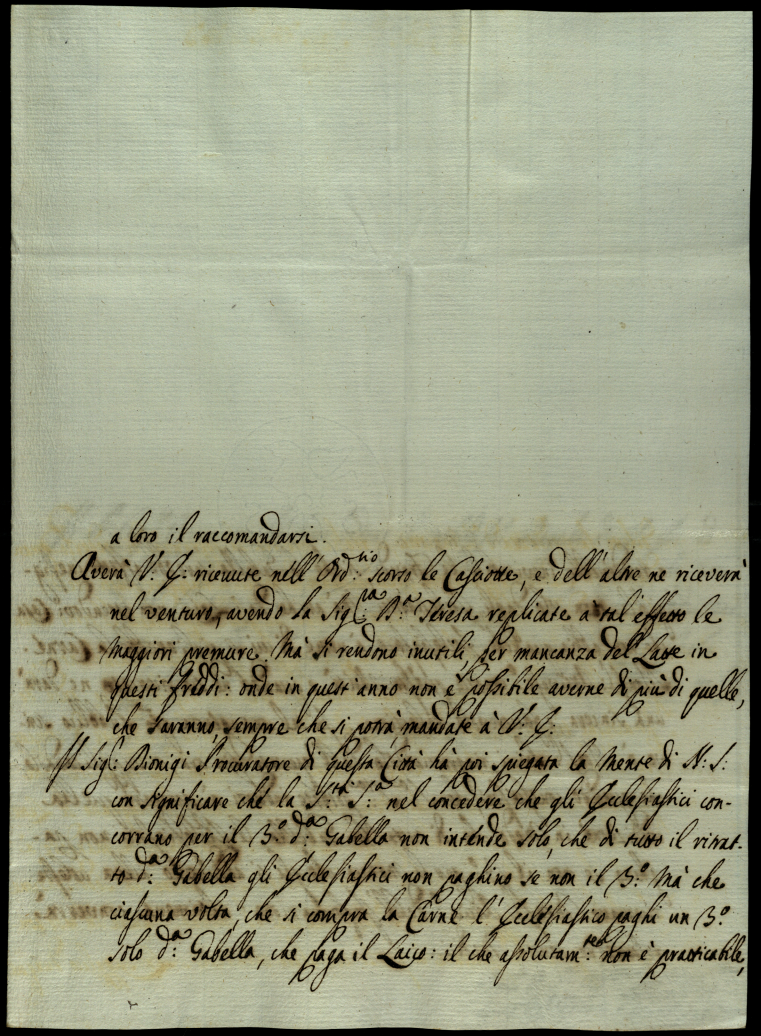 a loro il raccomandarsi.
Averà V. E. ricevute nell' Ord:rio scorso le Casciotte, e dell' altre ne riceverà
nel venturo, avendo la Sig:ra B:a Teresa replicate à tal' effetto le
maggiori premure. Mà si rendono inutili per mancanza del Latte in
questi freddi: onde in quest' anno non è possibile averne di più di quelle,
che saranno sempre che si potrà mandate à V: E:
Il Sig:r Bionigi Procuratore di questa Città hà poi spiegata la mente di N: S:
con significare che la S:tà S:a nel concedere che gli Ecclesiastici con-
corrano per il 3:o d:a Gabella non intende solo, che di tutto il ritrat-
to d:a Gabella gli Ecclesiastici non paghino se non il 3:o Mà che
ciascuna volta, che si compra la Carne l' Ecclesiastico paghi un 3:o
solo d:a Gabella, che paga il Laico: il che assolutam:te non è pratticabile,